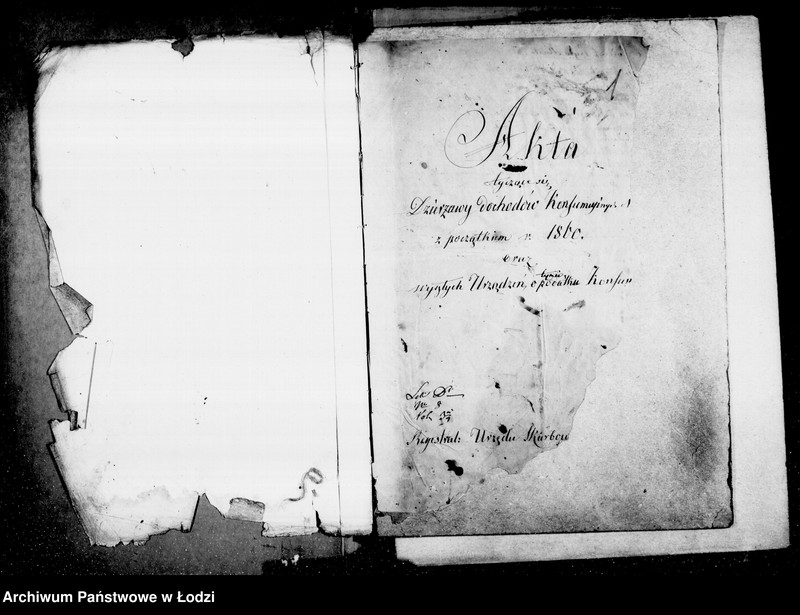 1
Akta
tyczące się
Dzierzawy dochodów Konsumcyjnych
z początkiem r. 1860.
oraz
wyjętych Urządzeń, o podatku Konsum
tymże
Lit: D
N 3
Registrat: Urzędu Skarbow
Archiwum Państwowe w Łodzi